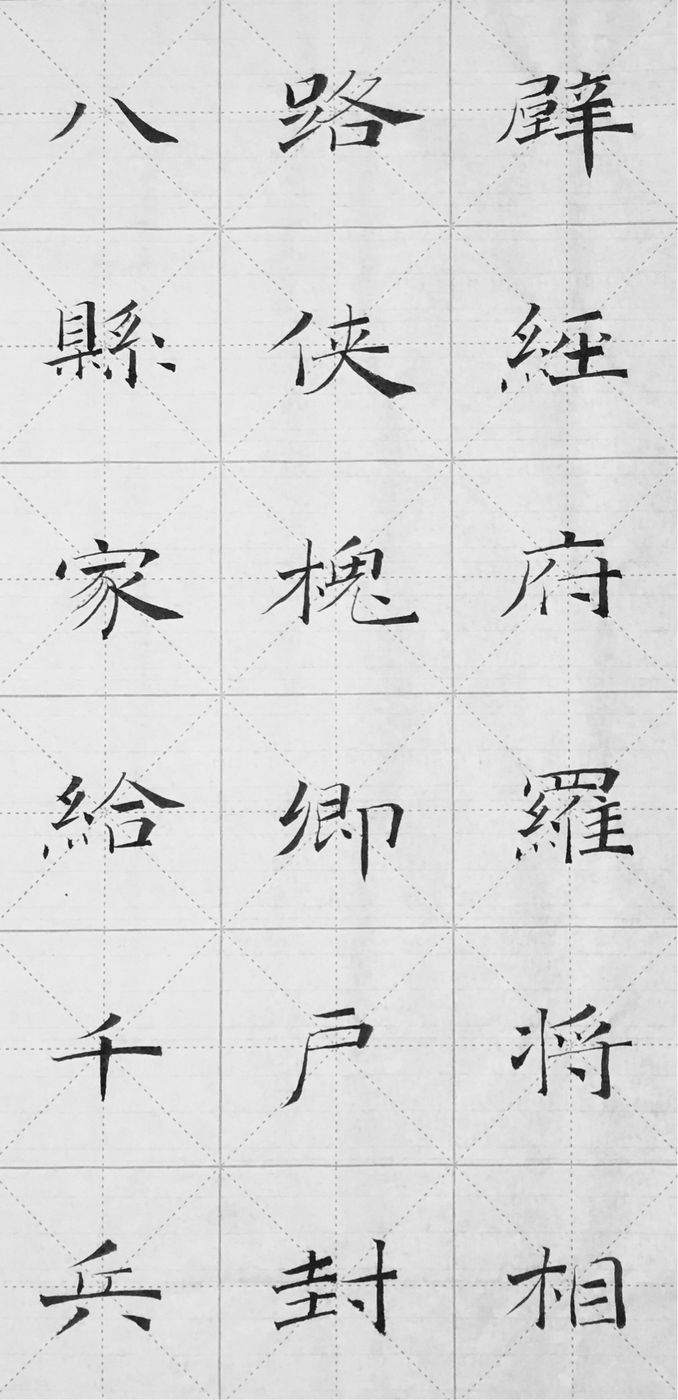 壁經府羅将相
路侠槐卿戶封
八縣家給千兵